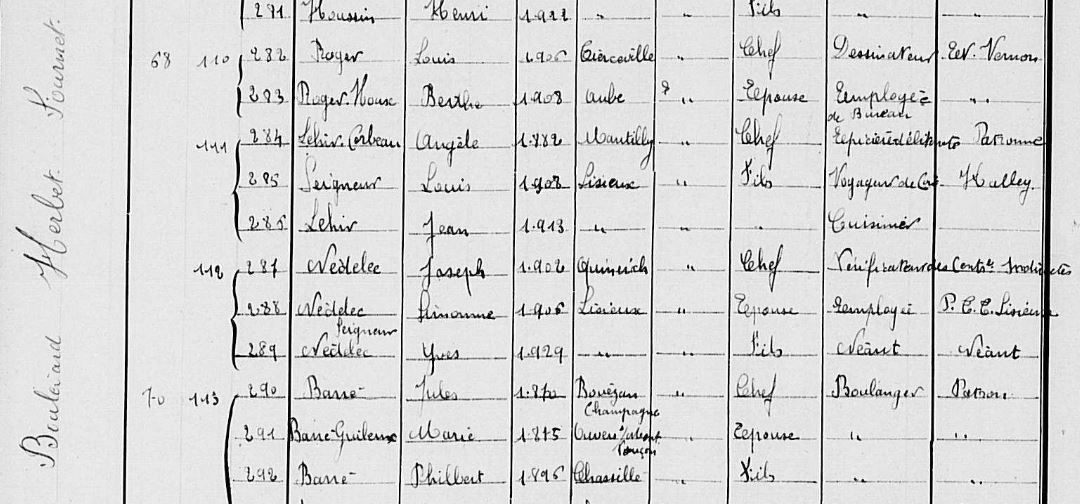 Boulevard Herbet Fournet
281 Houssin Henri 1922 " " Fils " "
68 110 282 Roger Louis 1906 " Chef Dessinateur Ed. Vernon
283 Roger-Houx Berthe 1908 Aube " Epouse Employée "
de Bureau
111 284 Lehir Corbeau Angèle 1882 Mantilly " Chef Patronne
285 Seigneur Louis 1908 Lisieux " Fils Voyageur de Halley
286 Lehir Jean 1913 " " " Cuisinier
112 287 Nédelec Joseph 1902 " Chef Vérificateur des Contr. Indirectes
288 Nédelec Simonne 1906 Lisieux " Epouse Employée P.T.T. Lisieux
Seigneur
289 Nédelec Yves 1929 " " Fils Néant Néant
70 113 290 Barré Jules 1870 " Chef Boulanger Patron
Champagne
291 Barré-Guilleux Marie 1875 " Epouse " "
292 Barré Philbert 1896 Chassillé " Fils " "